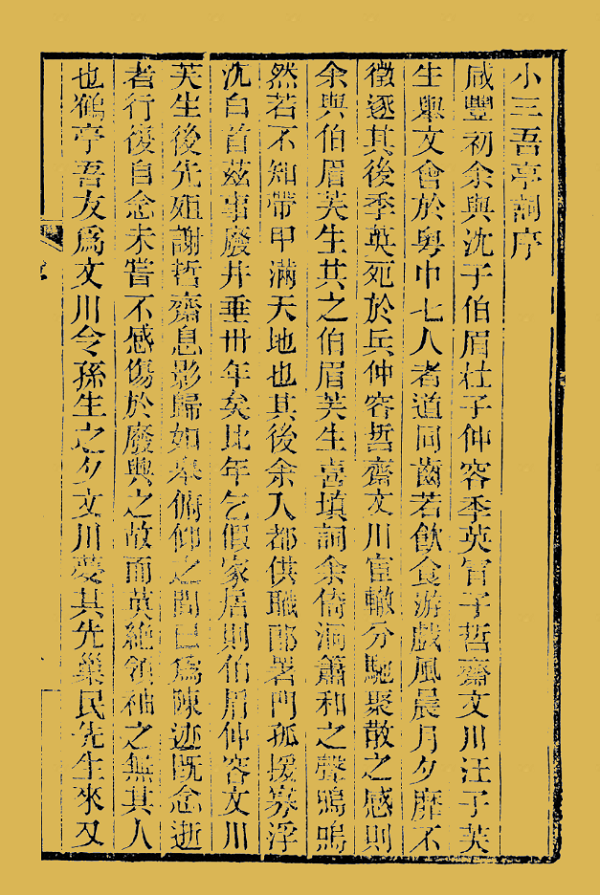 小三吾亭詞序
咸豐初余與沈子伯眉杜子仲容季英冒子哲齋文川汪子芙
生舉文會於粵中七人者道同齒若飲食游戲風晨月夕靡不
徵逐其後季英死於兵仲容哲齋文川宦轍分馳聚散之感則
余與伯眉芙生共之伯眉芙生喜填詞余倚洞簫和之聲嗚嗚
然若不知帶甲滿天地也其後余入都供職郎署門孤援寡浮
沈白首茲事廢幷垂卅年矣比年乞假家居則伯眉仲容文川
芙生後先殂謝哲齋息影歸如皋俯仰之間已爲陳迹旣念逝
者行復自念未嘗不感傷於廢興之故而英絕領袖之無其人
也鶴亭吾友爲文川令孫生之夕文川夢其先巢民先生來又